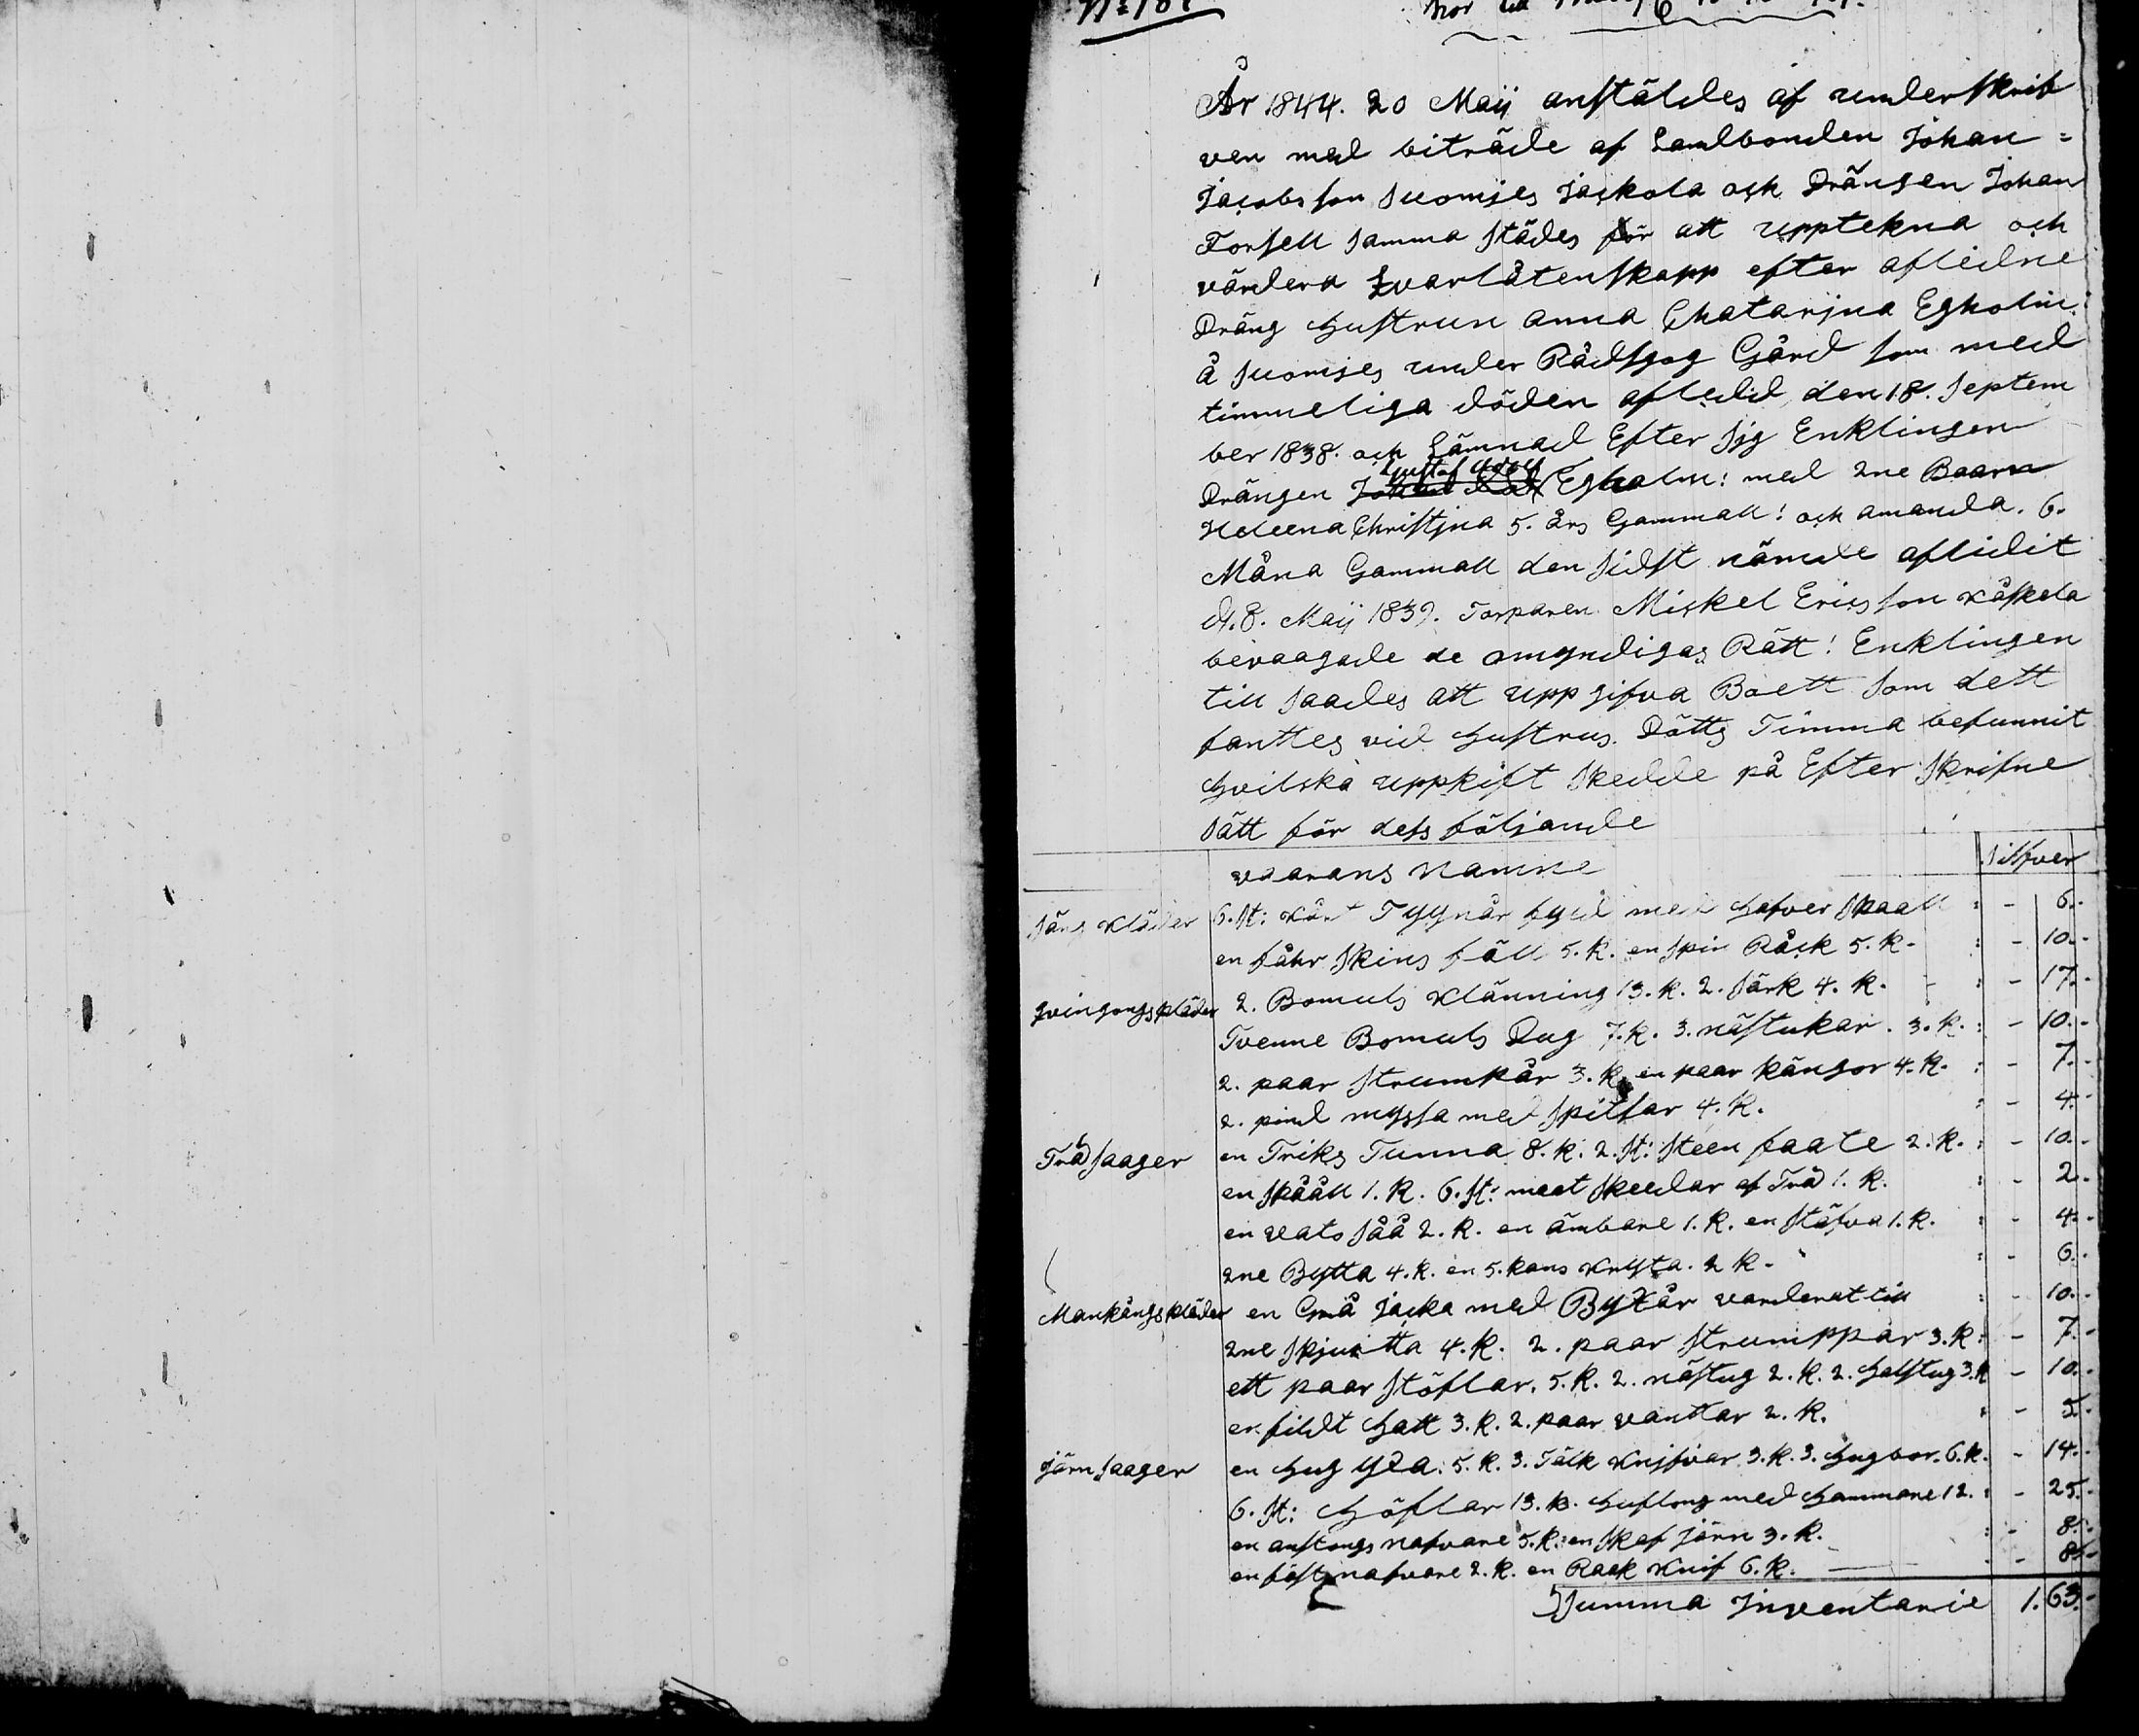 År 1844. 20 Maij anstäldes af underskrif
ven med biträde af Landbonden Johan =
Jacobsson Suomjes Jackola och Drängen Johan
Forsell samma städes för att upptekna och
värdera Qvarlåtenskapp efter afledne
Dräng Hustrun Anna Chatarjna Egholm:
å Suomjes under Rådsgog Gård som med
timmeliga döden afledid den 18. Septem
ber 1838. och Lämnad Efter sig Enklingen
Gustaf Adolf
Drängen Egholm: med 2ne Baarn
Heleena Christjna 5. års Gammall! och Amanda. 6.
Måna Gammall den sidst nämde aflidit
d. 8. Maij 1839. Torparen Mickel Ericsson Kåskela
bevaagade de omyndigas Rätt! Enklingen
till saades att uppgifva Boett som dett
fanttes vid Hustrus Dötts Timma befunnit
Hvilska uppkift skedde på Efter skrifne
sätt för dess följande
vaarans Namne Silfver
Säng Kläder 6. st: Tyynår fyld med Hafver skaall : - 6.-
en fåhr skins fäll 5. k. en spin Råck 5. k. : - 10.-
Qvingongs kläder 2. Bomuls Klänning 13. k. 2. särk 4. k. : - 17.-
Tvenne Bomuls Dug 7. k. 3. nästukar. 3. k. : - 10.-
2. paar strumpår 3. k. en paar kängor 4. k. : - 7.-
2. pind myssa med spitsar 4. k. : - 4.-
Träsaager en Triks Tunna 8. k. 2. st: steen faate 2. k. : - 10.-
en skååll 1. k. 6. st: maat skeedar af Trä 1. k. : - 2.-
en vato såå 2. k. en ämbare 1. k. en stäfva 1. k. : - 4.-
2ne Bytta 4. k. en 5. kans Krysta. 2 k. : - 6.-
Mankångs kläder en Grå jacka med Byxår varderat till : - 10.-
2ne skjurtta 4. k. 2. paar strumppar 3. k : - 7.-
ett paar stöflar. 5. k. 2. nästug 2. k. 2. Halstug 3. k - 10.-
en fildt Hatt 3. k. 2. paar vanttar 2. k. : - 5.-
Järnsaager en Hug yxa. 5. k. 3. Tälk Knifvar 3. k. 3. Hugbor. 6. k. - 14.-
6. st: Höflar 13. k. Huftong med Hammare 12. : - 25.-
en anstongs nafvare 5. k. en skaf järn 3. k. : - 8.-
en fäst nafvare 2. k. en Raak Knif 6. k. - 8.-
Summa Inventarie 1. 63.-